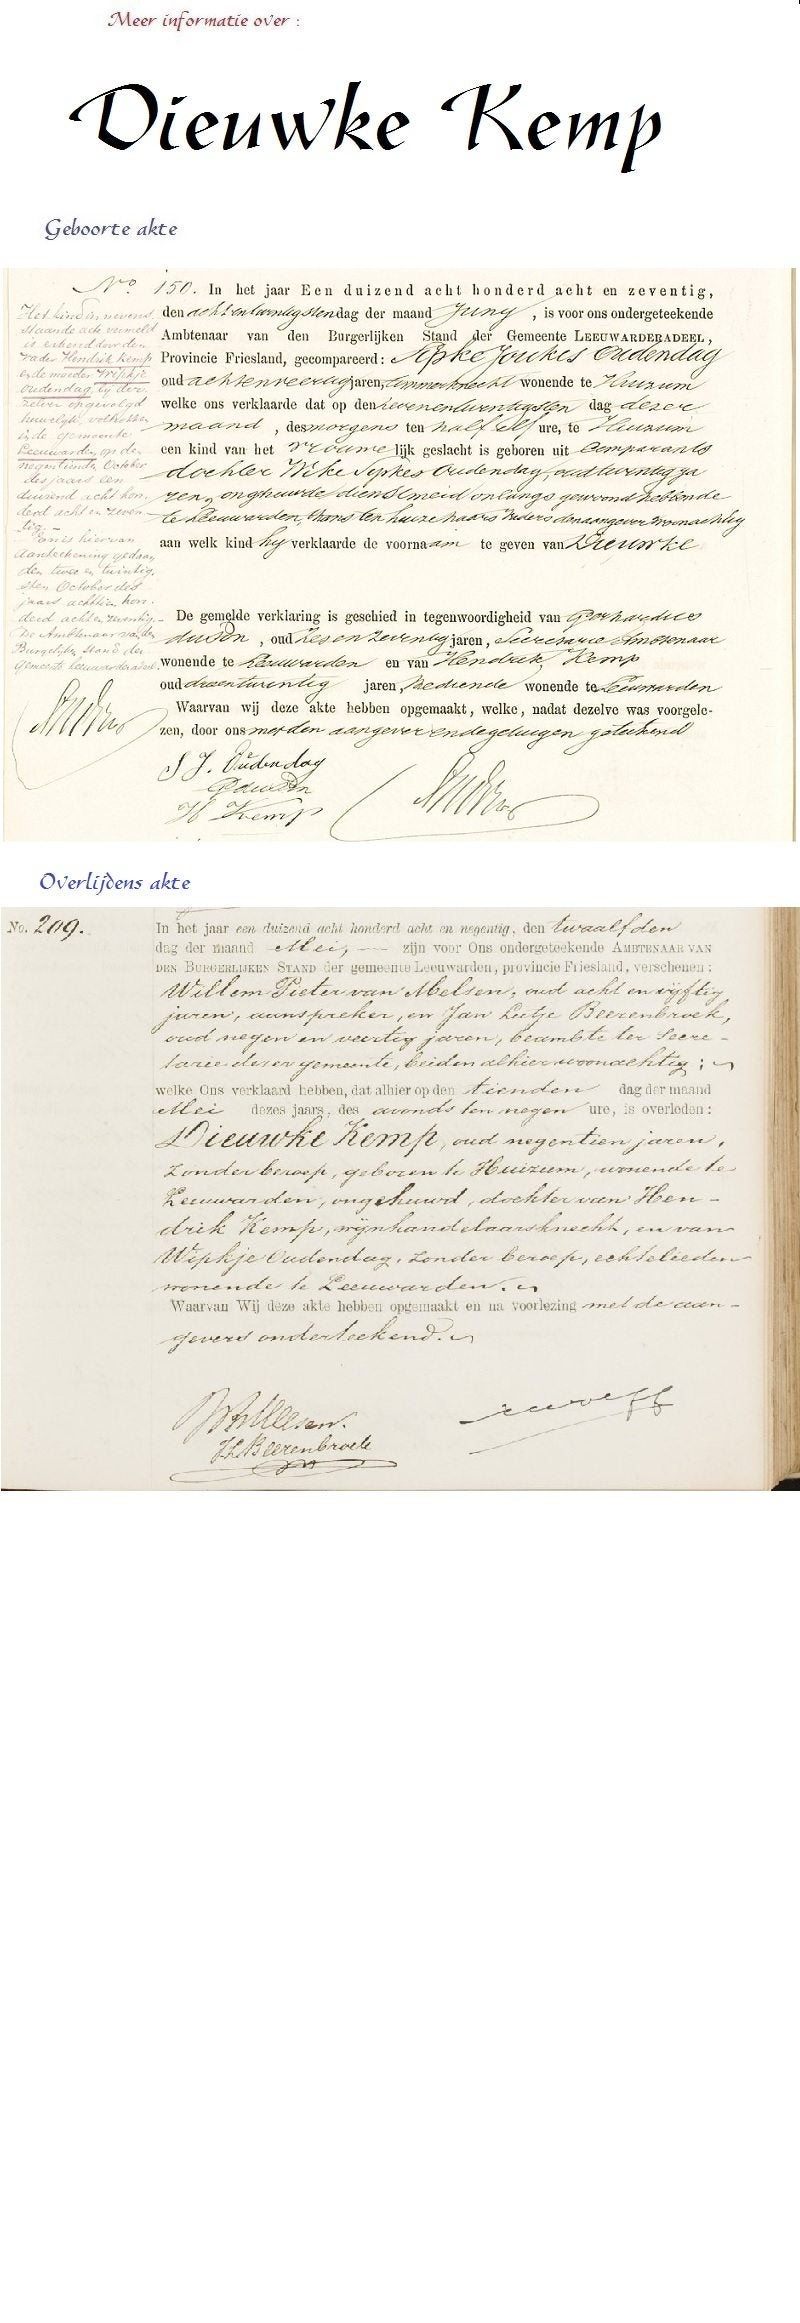 Meer informatie over :
Dieuwke Kemp
Geboorte akte
No. 150. In het jaar Een duizend acht honderd acht en zeventig,
den achtentwintigsten dag der maand Juny, is voor ons ondergeteekende
Ambtenaar van den Burgerlijken Stand der Gemeente LEEUWARDERADEEL,
Provincie Friesland, gecompareerd: Sipke Joukes Oudendag
oud achtenveertig jaren, timmerknecht wonende te Huizum
welke ons verklaarde dat op den zevenentwintigsten dag dezer
maand, des morgens ten half elf ure, te Huizum
een kind van het vrouwelijk geslacht is geboren uit Comparants
dochter Sipkes Oudendag, oud twintig ja
ren, ongehuwde dienstmeid onlangs gewoond hebbende
te Leeuwarden, thans ten huize haars Vaders den aangever woonachtig
aan welk kind hy verklaarde de voornaam te geven van Dieuwke
Het kind in nevens
staande acte vermeld
is erkend door den
vader Hendrik Kemp
en de moeder Wipkje
Oudendag, bij der-
zelver opgevolgd
huwelijk, voltrokken
in de gemeente
Leeuwarden op den
negentienden October
des jaars een
duizend acht hon-
derd acht en zeven-
tig.-
hiervan
aanteekening gedaan
den twee en twintig-
sten October des
jaars achttien hon-
derd acht en zeventig.-
De Ambtenaar van den
Burgerlijken Stand der
Gemeente Leeuwarderadeel.
De gemelde verklaring is geschied in tegenwoordigheid van Gerhardus
, oud zes en zeventig jaren, Secretarie Ambtenaar
wonende te Leeuwarden en van Hendrik Kemp
oud drieentwintig jaren, Bediende wonende te Leeuwarden
Waarvan wij deze akte hebben opgemaakt, welke, nadat dezelve was voorgele-
zen, door ons met den aangever en de getuigen geteekend
S J. Oudendag
H Kemp
Overlijdens akte
No. 209. In het jaar een duizend acht honderd acht en negentig, den twaalfden
dag der maand Mei, zijn voor Ons ondergeteekende AMBTENAAR VAN
DEN BURGERLIJKEN STAND der gemeente Leeuwarden, provincie Friesland, verschenen:
Willem Pieter van Melsen, oud acht en vijftig
jaren, aanspreker, en Jan Lutje Beerenbroek,
oud negen en veertig jaren, beambte ter Secre-
tarie dezer gemeente, beiden alhier woonachtig;
welke Ons verklaard hebben, dat alhier op den tienden dag der maand
Mei dezes jaars, des avonds ten negen ure, is overleden:
Dieuwke Kemp, oud negentien jaren,
zonder beroep, geboren te Huizum, wonende te
Leeuwarden, ongehuwd, dochter van Hen-
drik Kemp, wijnhandelaarsknecht, en van
Wipkje Oudendag, zonder beroep, echtelieden
wonende te Leeuwarden.
Waarvan Wij deze akte hebben opgemaakt en na voorlezing met de aan-
gevers onderteekend.
JLBeerenbroek